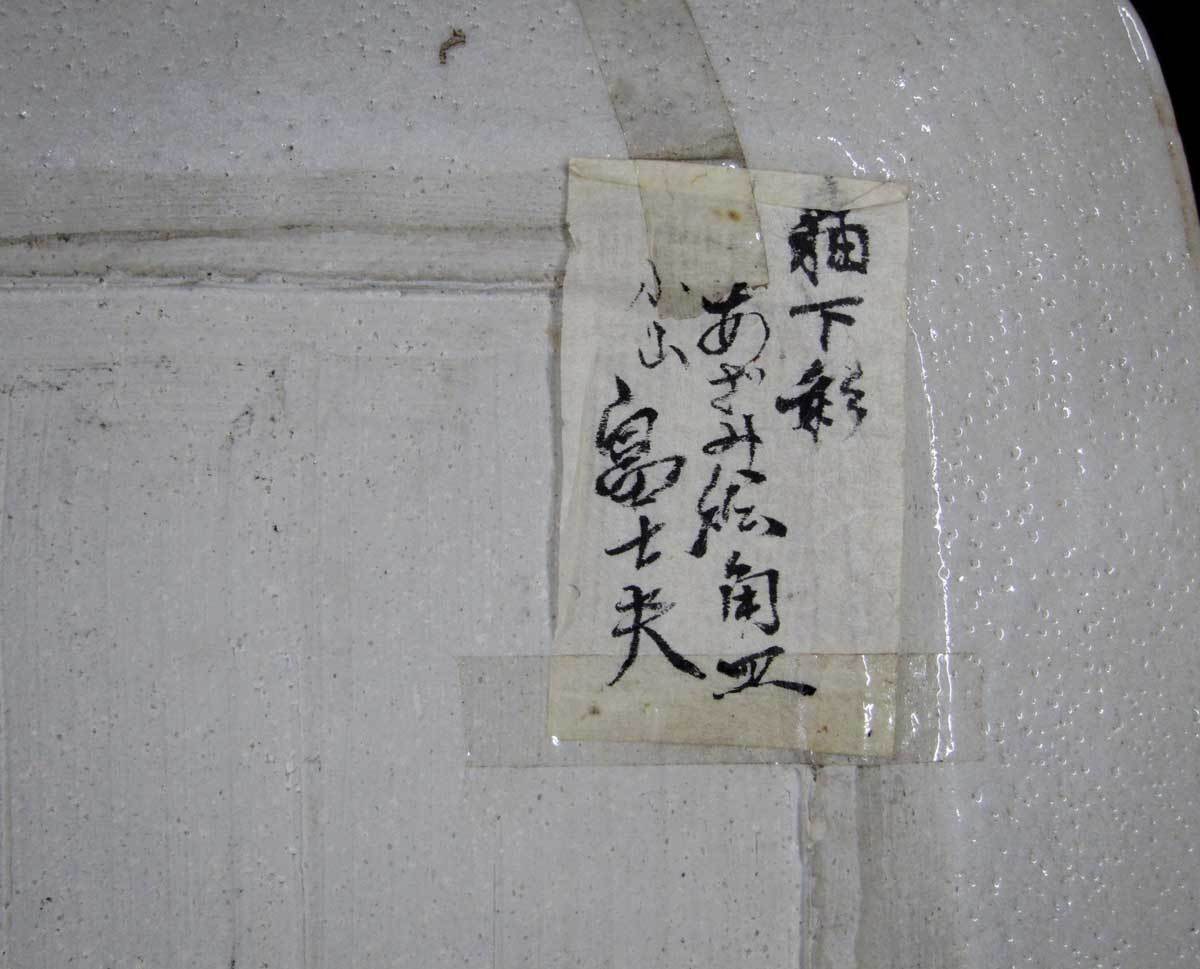 釉下彩
あざみ絵角皿
小山冨士夫